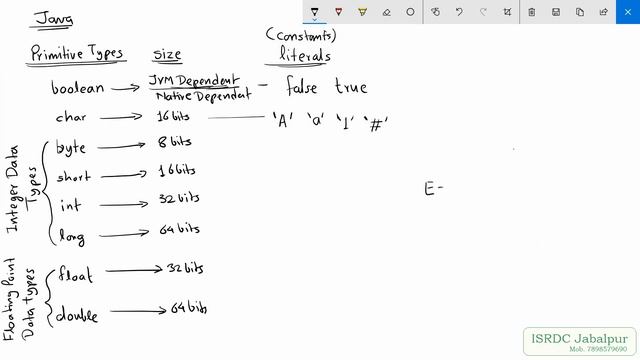 Java
(constants)
Primitive Types Size literals
boolean JVM Dependent - false true
Native Dependent
char 16 bits 'A' 'a' '1' '#'
Integer Data Types
byte 8 bits
short 16 bits
int 32 bits
long 64 bits
Floating Point Data Types
float 32 bits
double 64 bits
E-
ISRDC Jabalpur
Mob. 7898579690